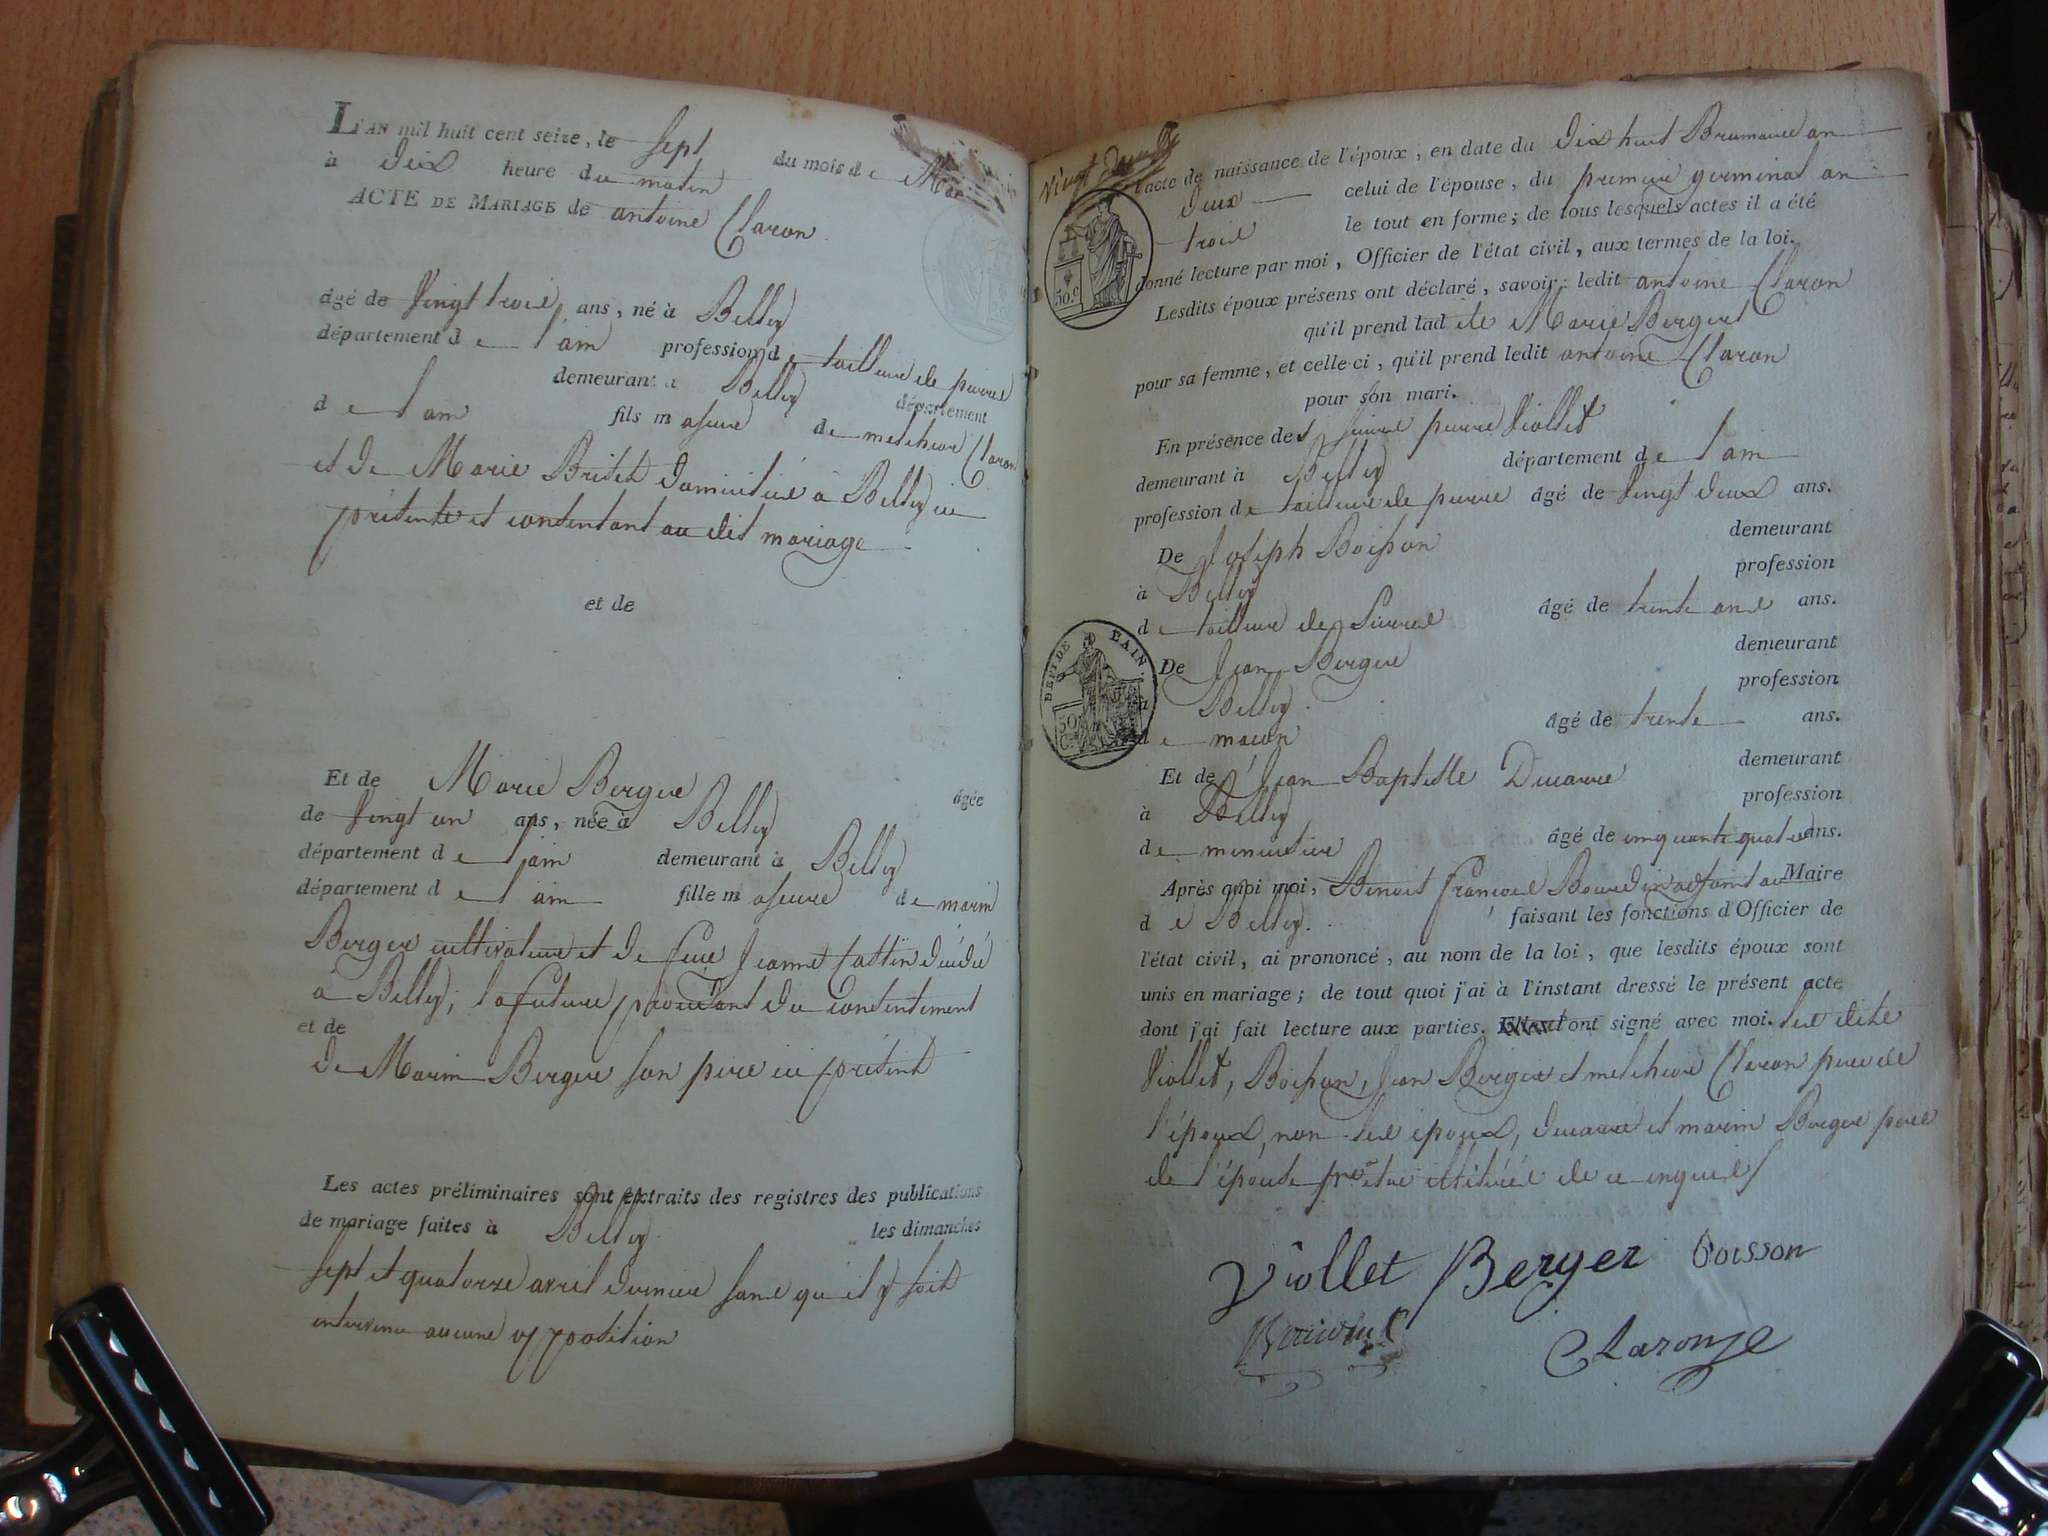 L'AN mil huit cent seize, le sept du mois de Mai
à dix heure du matin
ACTE DE MARIAGE de antoine Claron
âgé de vingt trois ans, né à Belley
département de l'ain profession de tailleur de pierres
demeurant à Belley département
de l'ain fils majeur de melchior Claron
et de Marie Britet domiciliés à Belley ici
présents et consentant au dit mariage
et de
Et de Marie Berger âgée
de vingt un ans, née à Belley
département de l'ain demeurant à Belley
département de l'ain fille majeure de marin
Berger cultivateur et de feue Jeannet décédé
à Belley; la future procédant du consentement
et de
de Marin Berger son père ici présent
Les actes préliminaires sont extraits des registres des publications
de mariage faites à Belley les dimanches
sept et quatorze avril dernier sans qu'il y soit
intervenu aucune opposition
Vingt deux
l'acte de naissance de l'époux, en date du dix huit Brumaire an
deux celui de l'épouse, du premier germinal an
trois le tout en forme; de tous lesquels actes il a été
donné lecture par moi, Officier de l'état civil, aux termes de la loi.
Lesdits époux présens ont déclaré, savoir: ledit antoine Claron
qu'il prend ladite Marie Berger
pour sa femme, et celle-ci, qu'il prend ledit antoine Claron
pour son mari.
En présence de pierre Viollet
demeurant à Belley département de l'ain
profession de tailleur de pierre âgé de vingt deux ans.
De Joseph Boisson demeurant
à Belley profession
de tailleur de pierres âgé de trente ans.
De Jean Berger demeurant
à Belley profession
de macon âgé de trente ans.
Et de Jean Baptiste Ducarre demeurant
à Belley profession
de menuisier âgé de cinquante quatre ans.
Après quoi moi, Benoit françois adjoint au Maire
de Belley faisant les fonctions d'Officier de
l'état civil, ai prononcé, au nom de la loi, que lesdits époux sont
unis en mariage; de tout quoi j'ai à l'instant dressé le présent acte
dont j'ai fait lecture aux parties. ont signé avec moi. les dits
Viollet, Boisson, Jean Berger et melchior Claron père de
l'époux, non les époux, ducarre et marin Berger père
de l'épouse illitérés de ce enquis
Viollet Berger boisson
Claronje
50.c
DEPT DE L'AIN
50 C